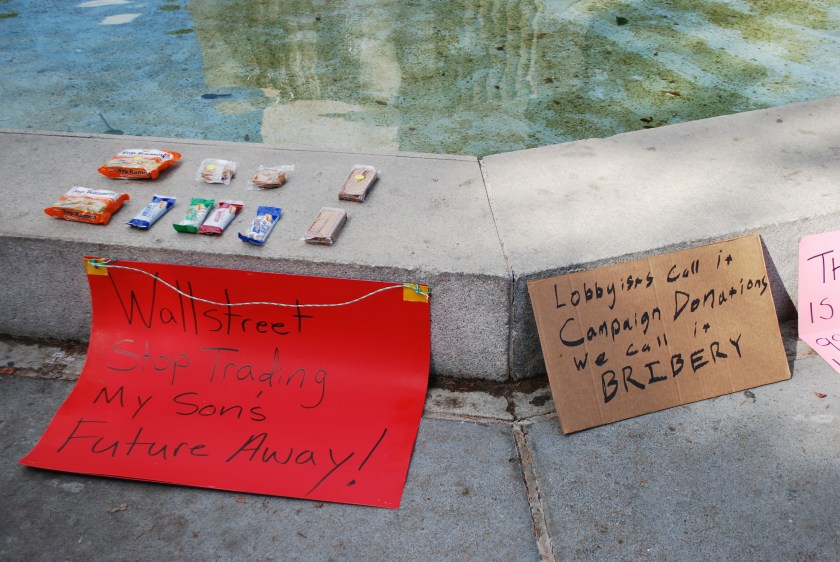 Wallstreet
Stop Trading
My Son's
Future Away!
Lobbyists call it
Campaign Donations
We call it
BRIBERY
TH
IS